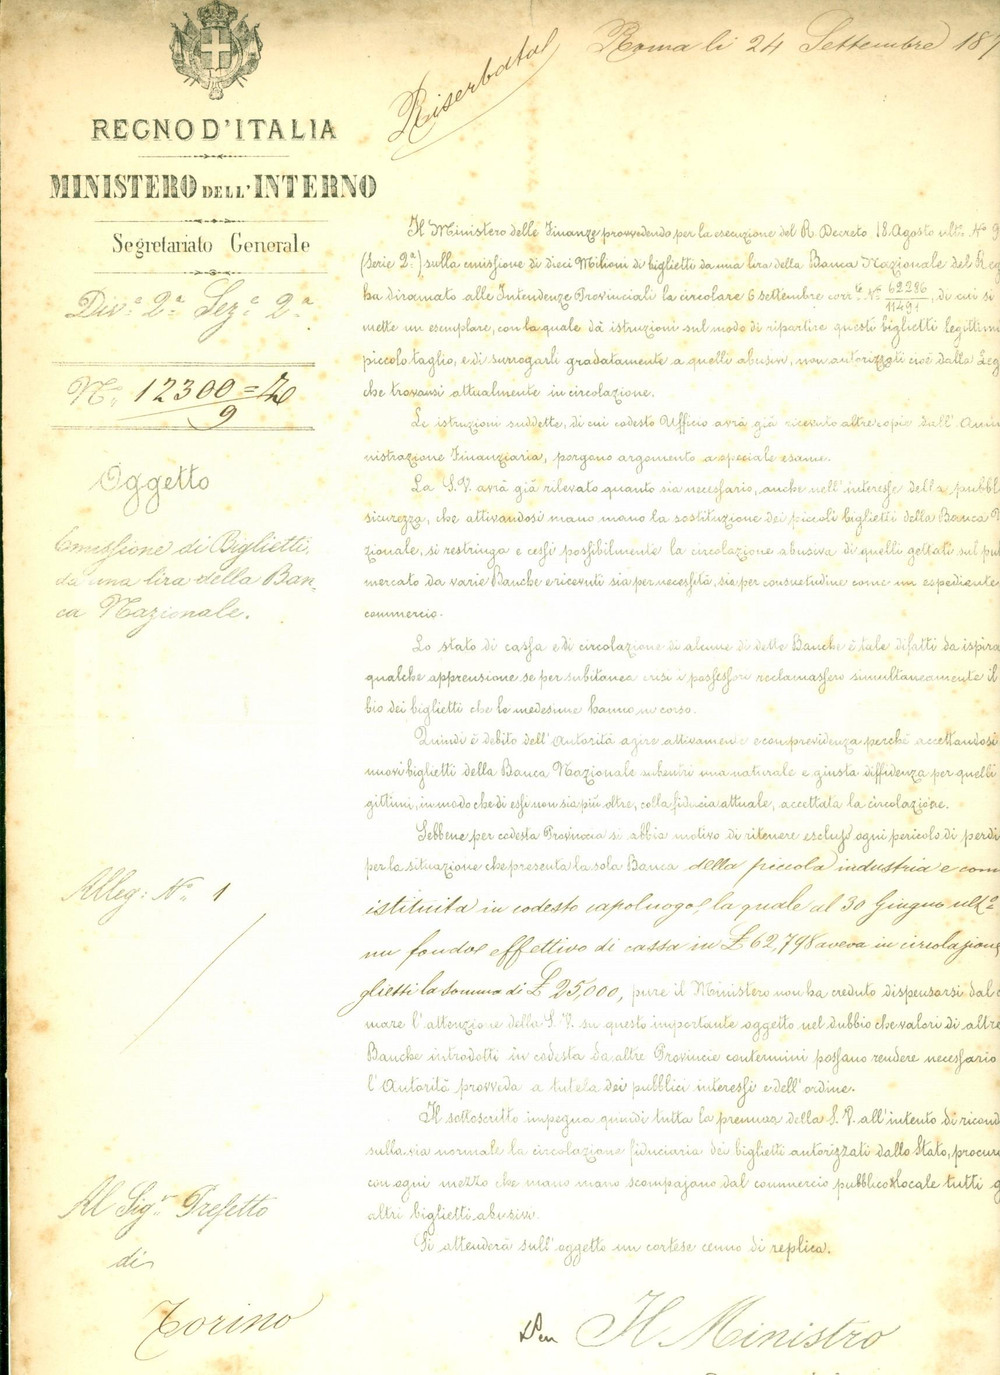 Roma li 24 Settembre 187
Riserbata
REGNO D'ITALIA
MINISTERO DELL'INTERNO
Segretariato Generale
Div.e 2.a Sez.e 2.a
N.o 12300=20
9
Oggetto
Emissione di Biglietti
da una lira della Ban-
ca Nazionale.
Alleg: N.o 1
Al Sig.r Prefetto
di
Torino
Il Ministero delle Finanze provvedendo per la esecuzione del R. Decreto 18 Agosto ult.o N.o 9
(Serie 2.a) sulla emissione di Dieci Milioni di biglietti da una lira della Banca Nazionale del Reg
ha diramato alle Intendenze Provinciali la circolare 6 settembre corr.te N.o 62286/11491, di cui si
mette un esemplare, con la quale dà istruzioni sul modo di ripartire questi biglietti legittimi
piccolo taglio, e di surrogarli gradatamente a quelli abusivi, non autorizzati cioè dalla Leg
che trovansi attualmente in circolazione.
Le istruzioni suddette, di cui codesto Ufficio avrà già ricevuto altre copie dall' Ammi
nistrazione Finanziaria, porgono argomento a speciale esame.
La S.V. avrà già rilevato quanto sia necessario, anche nell' interesse della pubbli
sicurezza, che attivandosi mano mano la sostituzione dei piccoli biglietti della Banca N
zionale, si restringa e cessi possibilmente la circolazione abusiva di quelli gettati sul pu
mercato da varie Banche e ricevuti sia per necessità, sia per consuetudine come un espediente
commercio.
Lo stato di cassa e di circolazione di alcune di dette Banche è tale difatti da ispira
qualche apprensione se per subitanea crisi i possessori reclamassero simultaneamente il
bio dei biglietti che le medesime hanno in corso.
Quindi è debito dell' Autorità agire attivamente e con previdenza perchè accettandosi
nuovi biglietti della Banca Nazionale subentri una naturale e giusta diffidenza per quelli
gittimi, in modo che di essi non sia più oltre, colla fiducia attuale, accettata la circolazione.
Sebbene per codesta Provincia si abbia motivo di ritenere escluso ogni pericolo di perdi
per la situazione che presenta la sola Banca della piccola industria e com
istituita in codesto capoluogo, la quale al 30 Giugno ult.o
un fondo effettivo di cassa in £ 62,798 aveva in circolazione
glietti la somma di £ 25,000, pure il Ministero non ha creduto dispensarsi dal c
mare l' attenzione della S.V. su questo importante oggetto nel dubbio che valori di altre
Banche introdotti in codesta da altre Provincie contermini possano rendere necessario
l' Autorità provveda a tutela dei pubblici interessi e dell' ordine.
Il sottoscritto impegna quindi tutta la premura della S.V. all' intento di ricond
sulla via normale la circolazione fiduciaria dei biglietti autorizzati dallo Stato, procur
con ogni mezzo che mano mano scompajano dal commercio pubblico e locale tutti g
altri biglietti abusivi.
Si attenderà sull' oggetto un cortese cenno di replica.
Pen Il Ministro